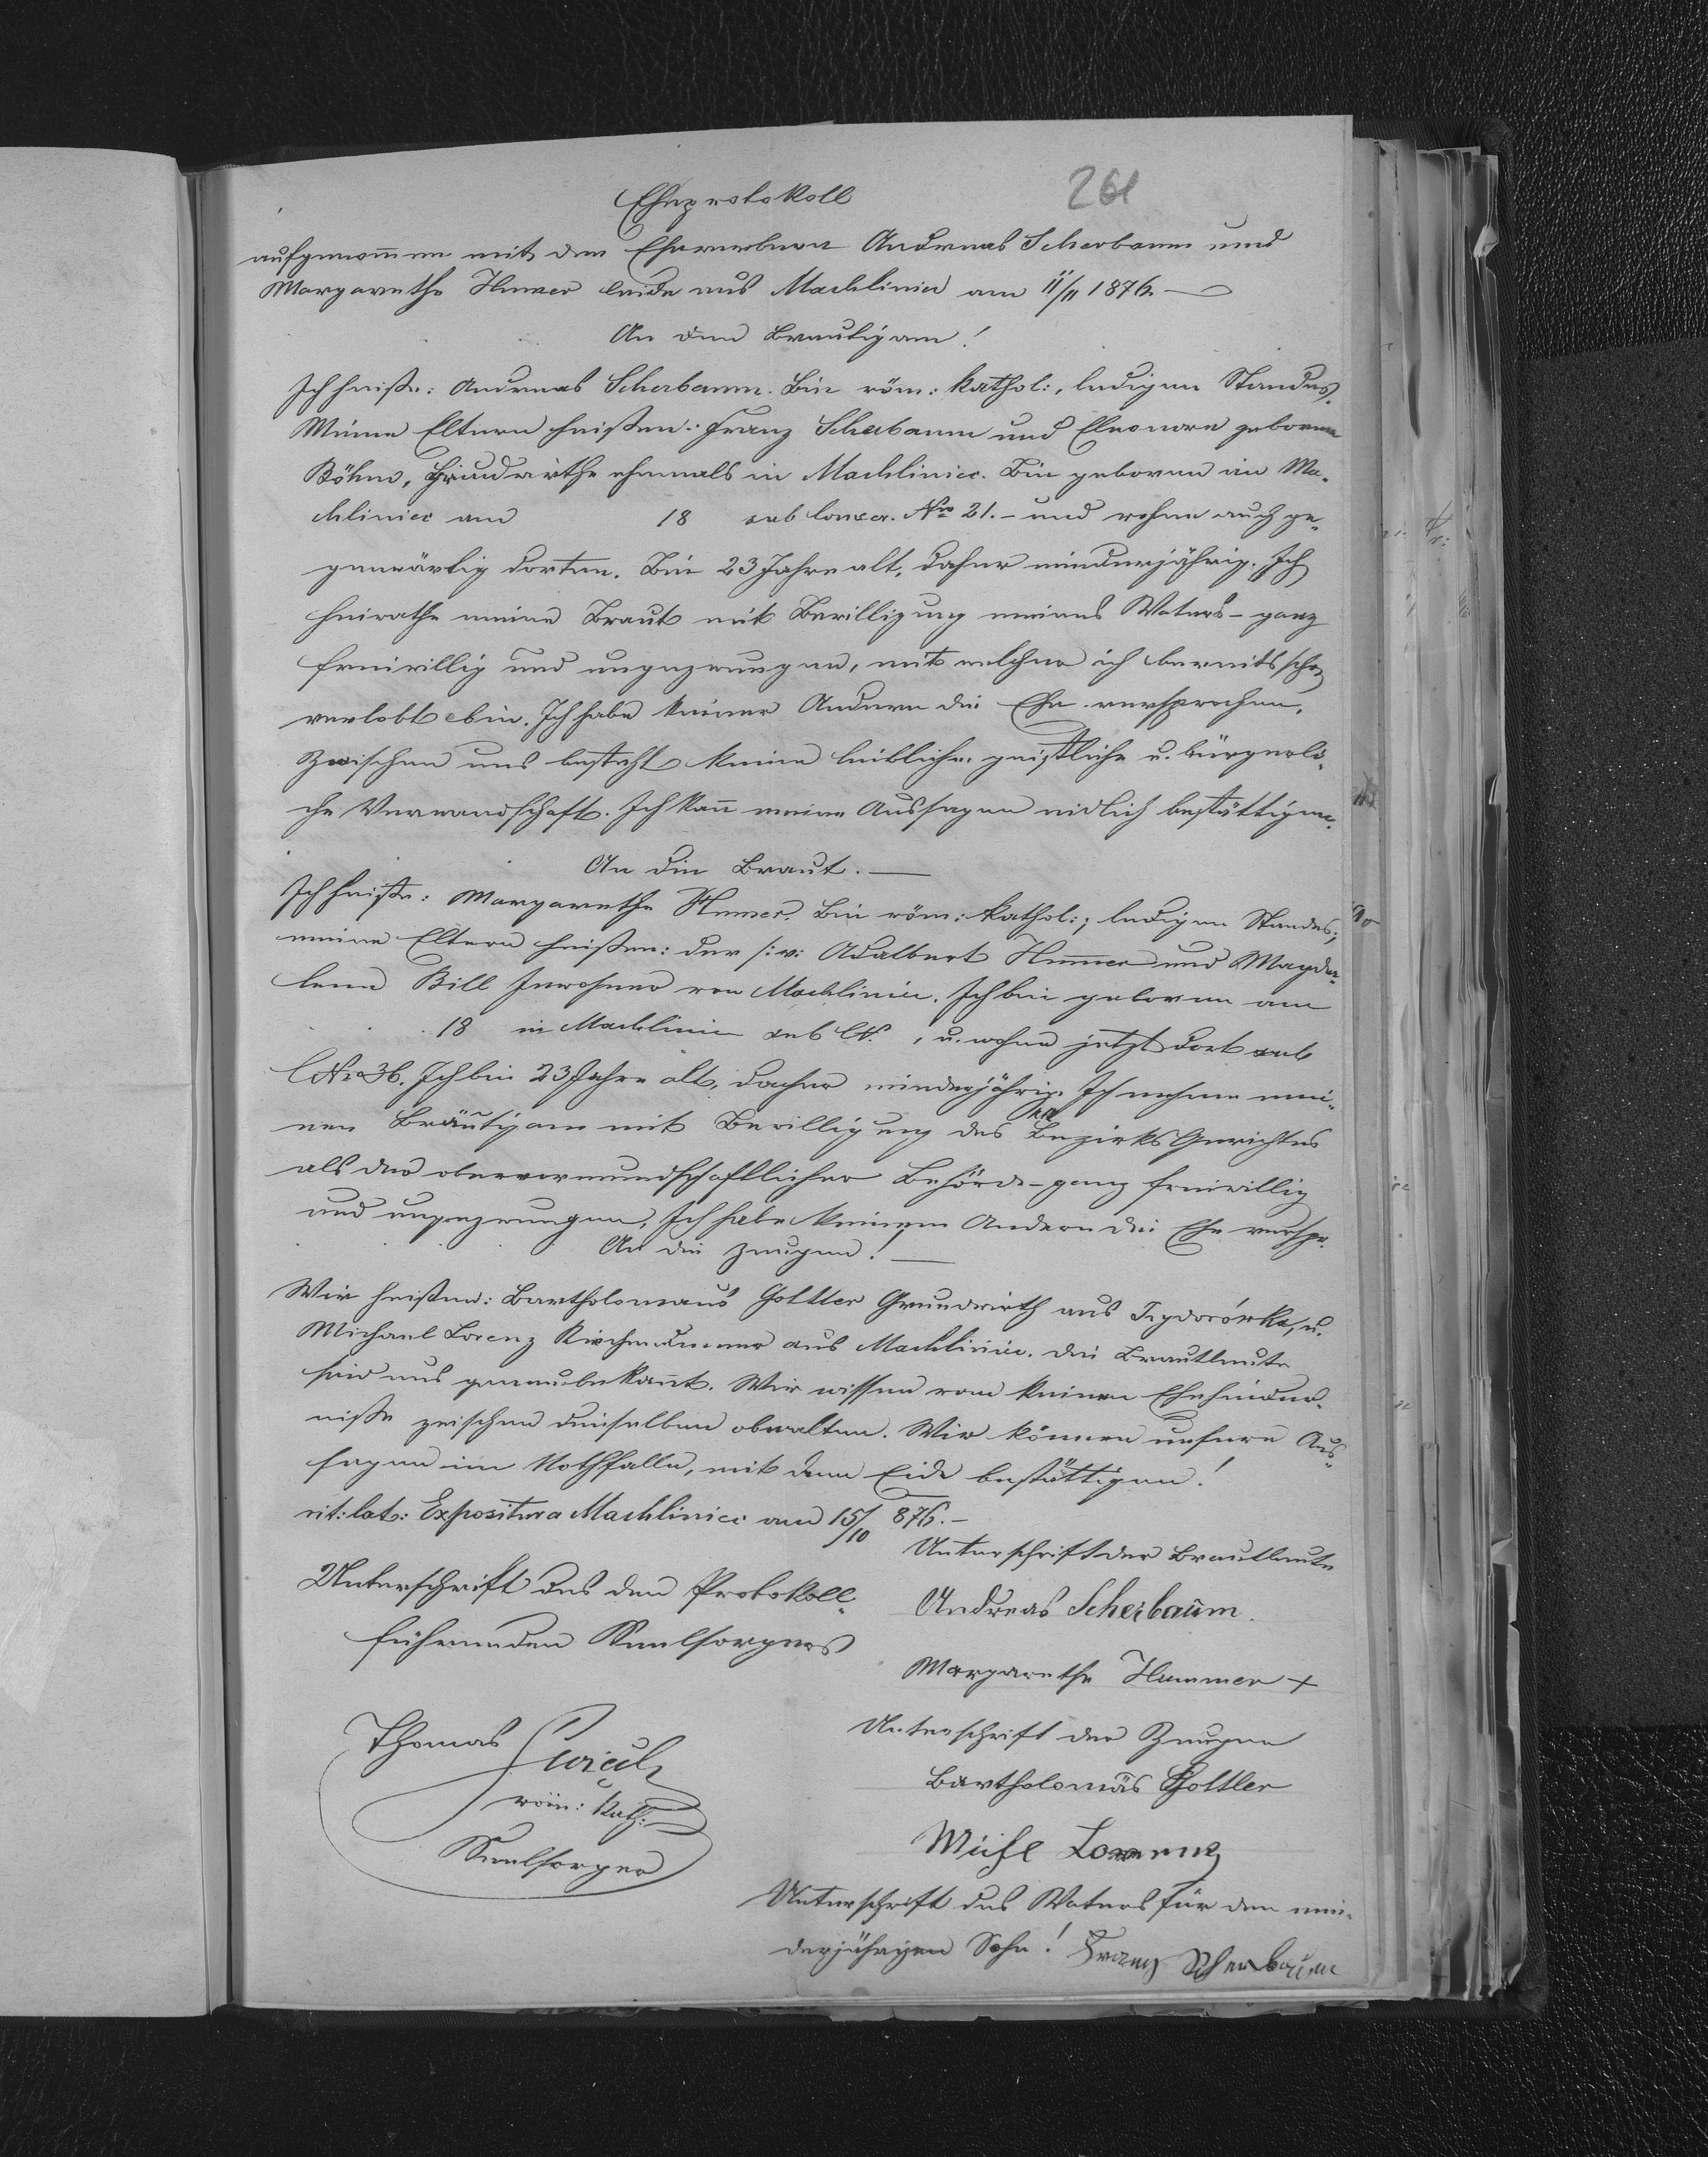 261
Eheprotokoll
aufgenom̅en mit den Ehewerbern Andreas Scherbaum und
Margarethe Hum̅er beide aus Machliniec am 11/11 1876.
An den Bräutigam!
Ich heiße: Andreas Scherbaum. Bin röm: kathol:, ledigen Standes.
Meine Eltern heißen: Franz Scherbaum und Eleonore geborene
Böhm, Grundwirthe ehemals in Machliniec. Bin geboren in Ma-
chliniec am 18 sub Conscr. Nro 21. - und wohne auch ge-
genwärtig dorten. Bin 23 Jahre alt, daher minderjährig. Ich
heirathe meine Braut mit Bewilligung meines Vaters - ganz
freiwillig und ungezwungen, mit welcher ich bereits schon
verlobt bin. Ich habe keiner Andern die Ehe versprochen.
Zwischen uns besteht keine leibliche, geistliche u. bürgerli-
che Verwandschaft. Ich kan̅ meine Aussagen eidlich bestättigen.
An die Braut.
Ich heiße: Margarethe Hum̅er. Bin röm: kathol:, ledigen Standes;
meine Eltern heißen: der /:v: Adalbert Hum̅er und Magda-
lena Bill Inwohner von Machliniec. Ich bin geboren am
18 in Machliniec sub CN. , u. wohne jetzt dort sub
CNro 36. Ich bin 23 Jahre alt, daher minderjährig. Ich nehme mei-
nen Bräutigam mit Bewilligung des Bezirks Gerichtes
als der obervormundschaftlicher Behörde - ganz freiwillig
und ungezwungen. Ich habe keinem Andern die Ehe verspr.
An die Zeugen!
Wir heißen: Bartholomäus Gottler Grundwirth aus Izydorówka, u.
Michael Lorenz Kirchendiener aus Machliniec. Die Brautleute
sind uns genau bekan̅t. Wir wissen von keinen Ehehinder-
nisse zwischen dieselben obwalten. Wir können unsere Aus-
sagen im Nothfalle, mit dem Eide bestättigen!
rit: lat: Expositura Machliniec am 15/10 876.-
Unterschrift der Brautleute
Unterschrift des den Protokoll-
führenden Seelsorgers
Andreas Scherbaum.
Margarethe Hummer +
Thomas
röm: kath:
Seelsorger
Unterschrift der Zeugen
Bartholomäs Gottler
Michl Lorenz
Unterschrift des Vaters für den min-
derjährigen Sohn! Franz Scherbaum